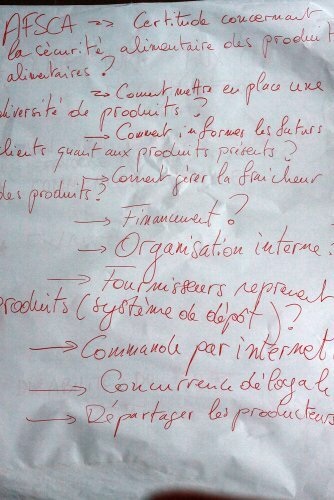 AFSCA --> Certitude concernant
la sécurité alimentaire des produits
alimentaires ?
-> Comment mettre en place une
diversité de produits ?
-> Comment informer les futurs
clients quant aux produits présents ?
-> Comment gérer la fraîcheur
des produits ?
-> Financement ?
-> Organisation interne ?
-> Fournisseurs reprennent
produits (système de dépôt) ?
-> Commande par internet
-> Concurrence déloyale
-> Départager les producteurs